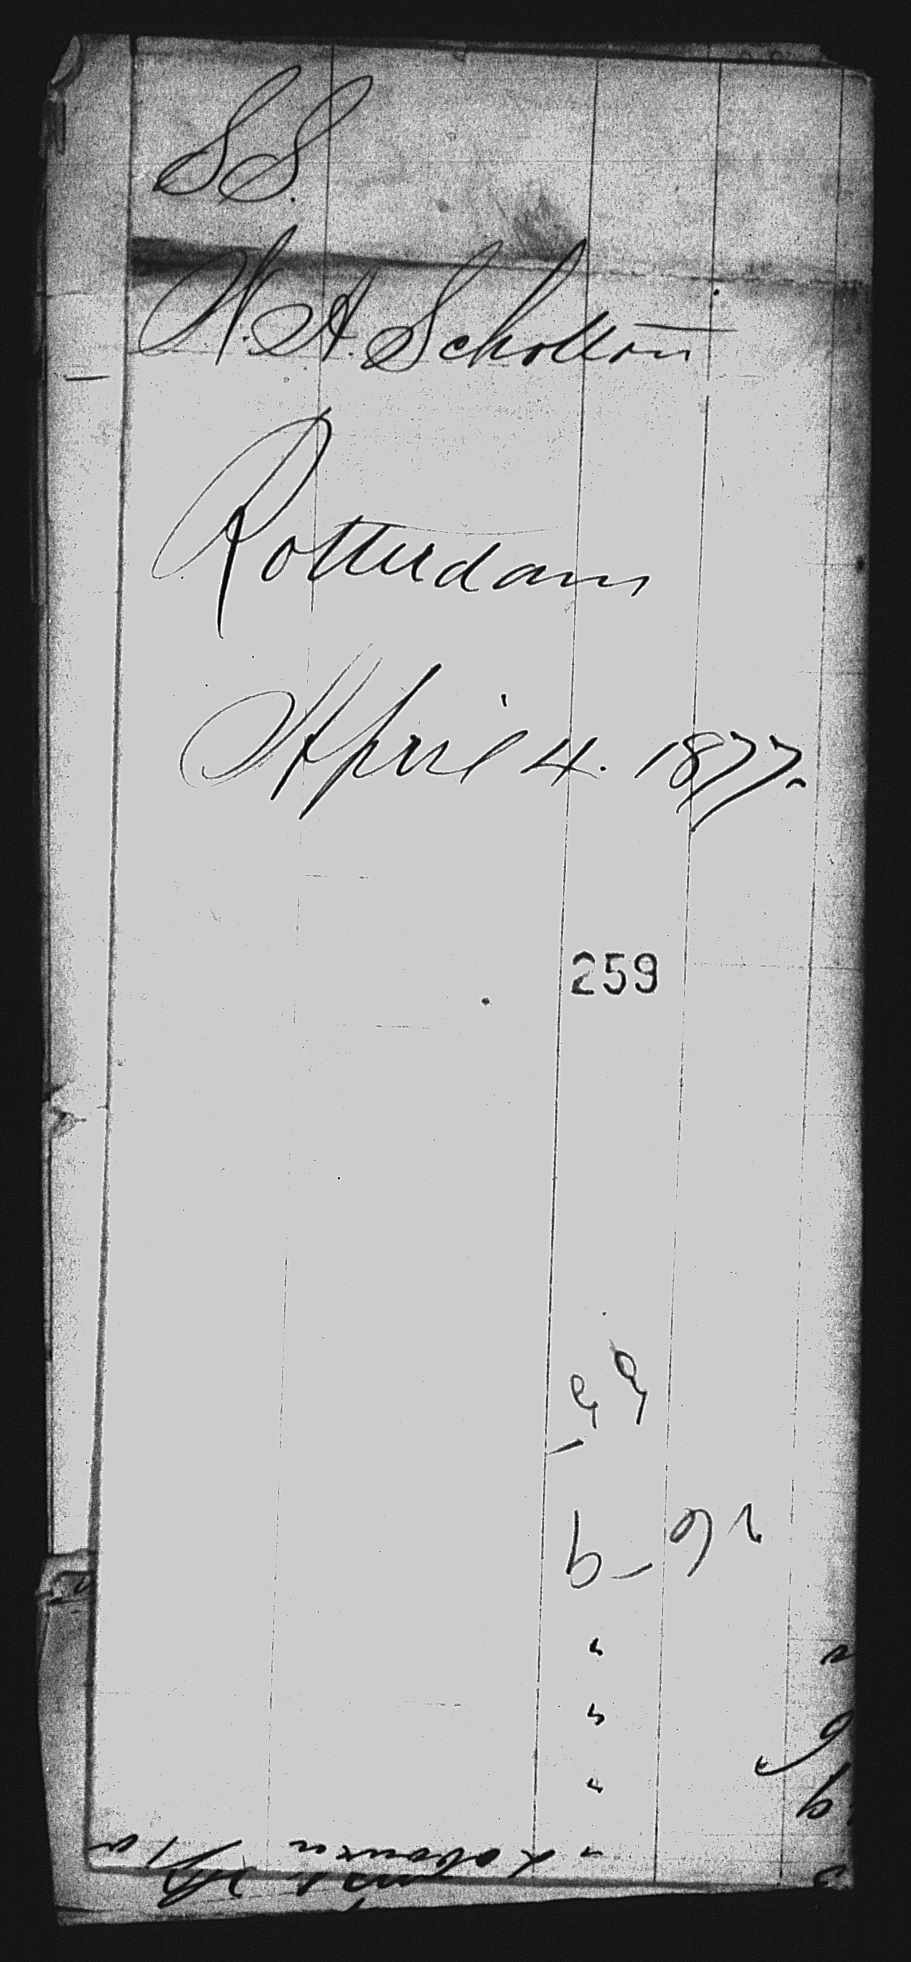 S.S.
W. A. Scholten
Rotterdam
April 4. 1877.
259